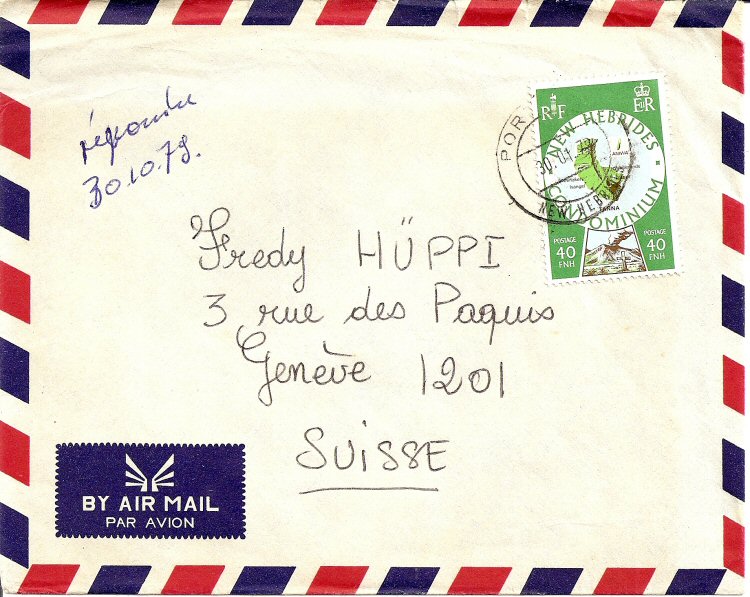 répondu
30.10.79.
RF
EIIR
NEW HEBRIDES
CONDOMINIUM
TANNA
POSTAGE
40
FNH
POSTAGE
40
FNH
POR
30. 01
NEW HEBRIDES
Fredy HÜPPI
3 rue des Paquis
Genève 1201
SUISSE
BY AIR MAIL
PAR AVION